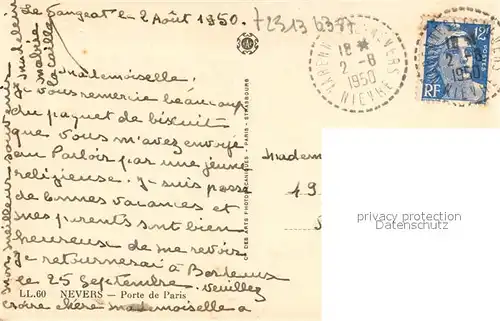 de Sangeat le 2 Août 1950.
72313 6377
Mademoiselle.
vous remercie beaucoup
du paquet de biscuit
que vous m'avez envoyé
au Parloir par une jeune
religieuse. Je suis passé
de bonnes vacances et
mes parents sont bien
heureux de me revoir
Je retournerai à Bordeaux
le 25 Septembre. Veuillez
croire chère mademoiselle a
mon meilleur souvenir
LL.60 NEVERS — Porte de Paris
CIE DES ARTS PHOTOMÉCANIQUES - PARIS - STRASBOURG
NEVERS
NIÈVRE
18 *
2 - 8
1950
RF
POSTES
2F
18 *
2
1950
Madem
19
privacy protection
Datenschutz